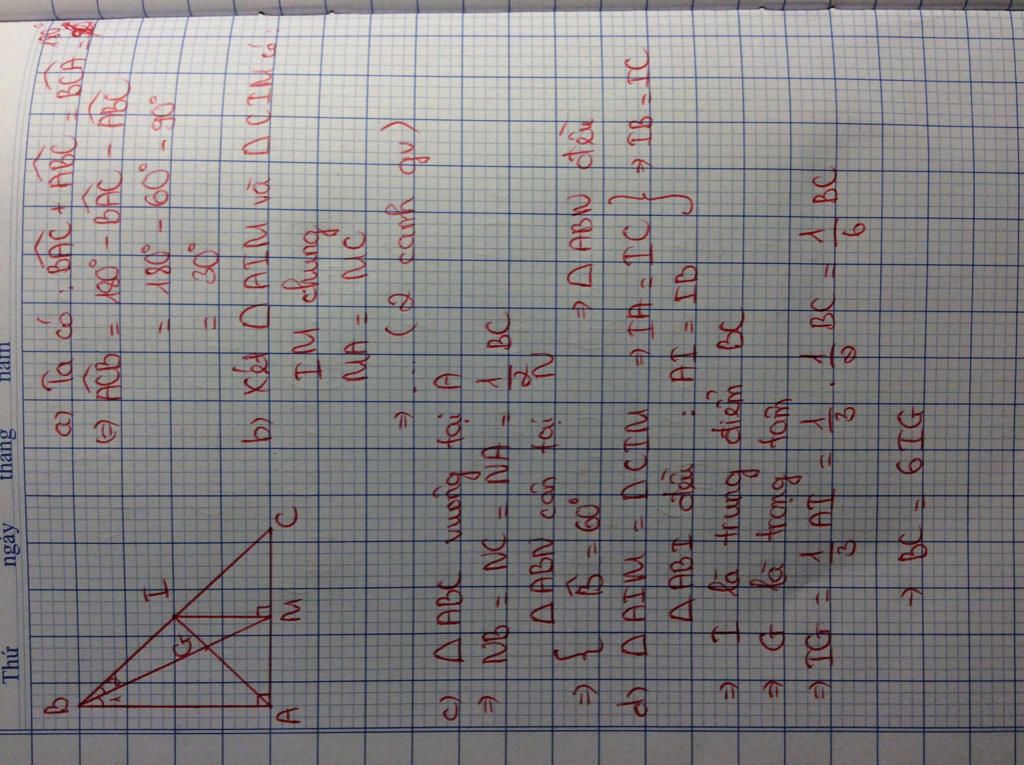 Thứ ngày tháng năm
B
I
G
A
M
C
a) Ta có: BAC + ABC = BCA =
(=) ACB = 180° - BAC - ABC
= 180° - 60° - 90°
= 30°
b) Xét Δ AIM và Δ CIM có:
IM chung
MA = MC
⇒ ... (2 cạnh gv)
c) Δ ABC vuông tại A
⇒ NB = NC = NA = 1/2 BC
⇒ { Δ ABN cân tại N
B = 60° ⇒ Δ ABN đều
d) Δ AIM = Δ CIM ⇒ IA = IC } ⇒ IB = IC
Δ ABI đều : AI = IB
⇒ I là trung điểm BC
⇒ G là trọng tâm
⇒ IG = 1/3 AI = 1/3 . 1/2 BC = 1/6 BC
→ BC = 6IG